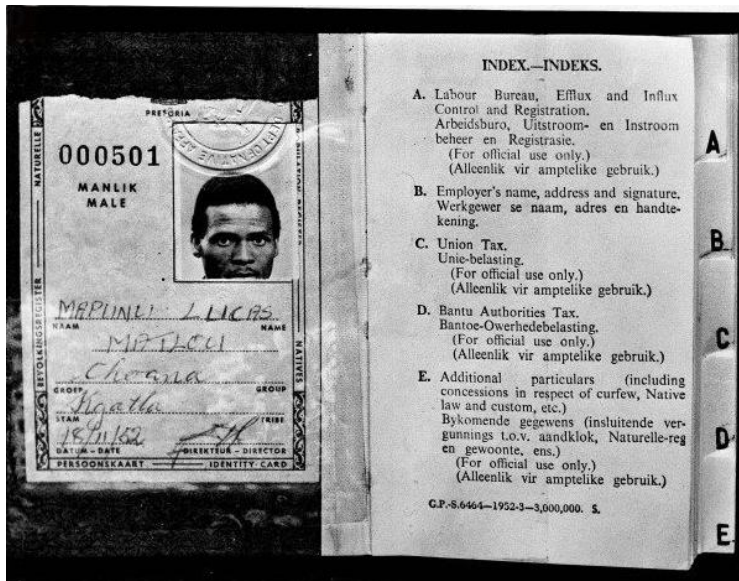 PRETORIA
NATURELLE
BEVOLKINGSREGISTER
NATIVES
000501
MANLIK
MALE
LUCAS
NAAM NAME
GROEP GROUP
Kgatla
STAM TRIBE
18/11/52
DATUM-DATE DIREKTEUR-DIRECTOR
PERSOONSKAART IDENTITY-CARD
INDEX.—INDEKS.
A. Labour Bureau, Efflux and Influx
Control and Registration.
Arbeidsburo, Uitstroom- en Instroom
beheer en Registrasie.
(For official use only.)
(Alleenlik vir amptelike gebruik.)
B. Employer's name, address and signature.
Werkgewer se naam, adres en handte-
kening.
C. Union Tax.
Unie-belasting.
(For official use only.)
(Alleenlik vir amptelike gebruik.)
D. Bantu Authorities Tax.
Bantoe-Owerhedebelasting.
(For official use only.)
(Alleenlik vir amptelike gebruik.)
E. Additional particulars (including
concessions in respect of curfew, Native
law and custom, etc.)
Bykomende gegewens (insluitende ver-
gunnings t.o.v. aandklok, Naturelle-reg
en gewoonte, ens.)
(For official use only.)
(Alleenlik vir amptelike gebruik.)
G.P.-S.6464—1952-3—3,000,000. S.
A
B
C
D
E